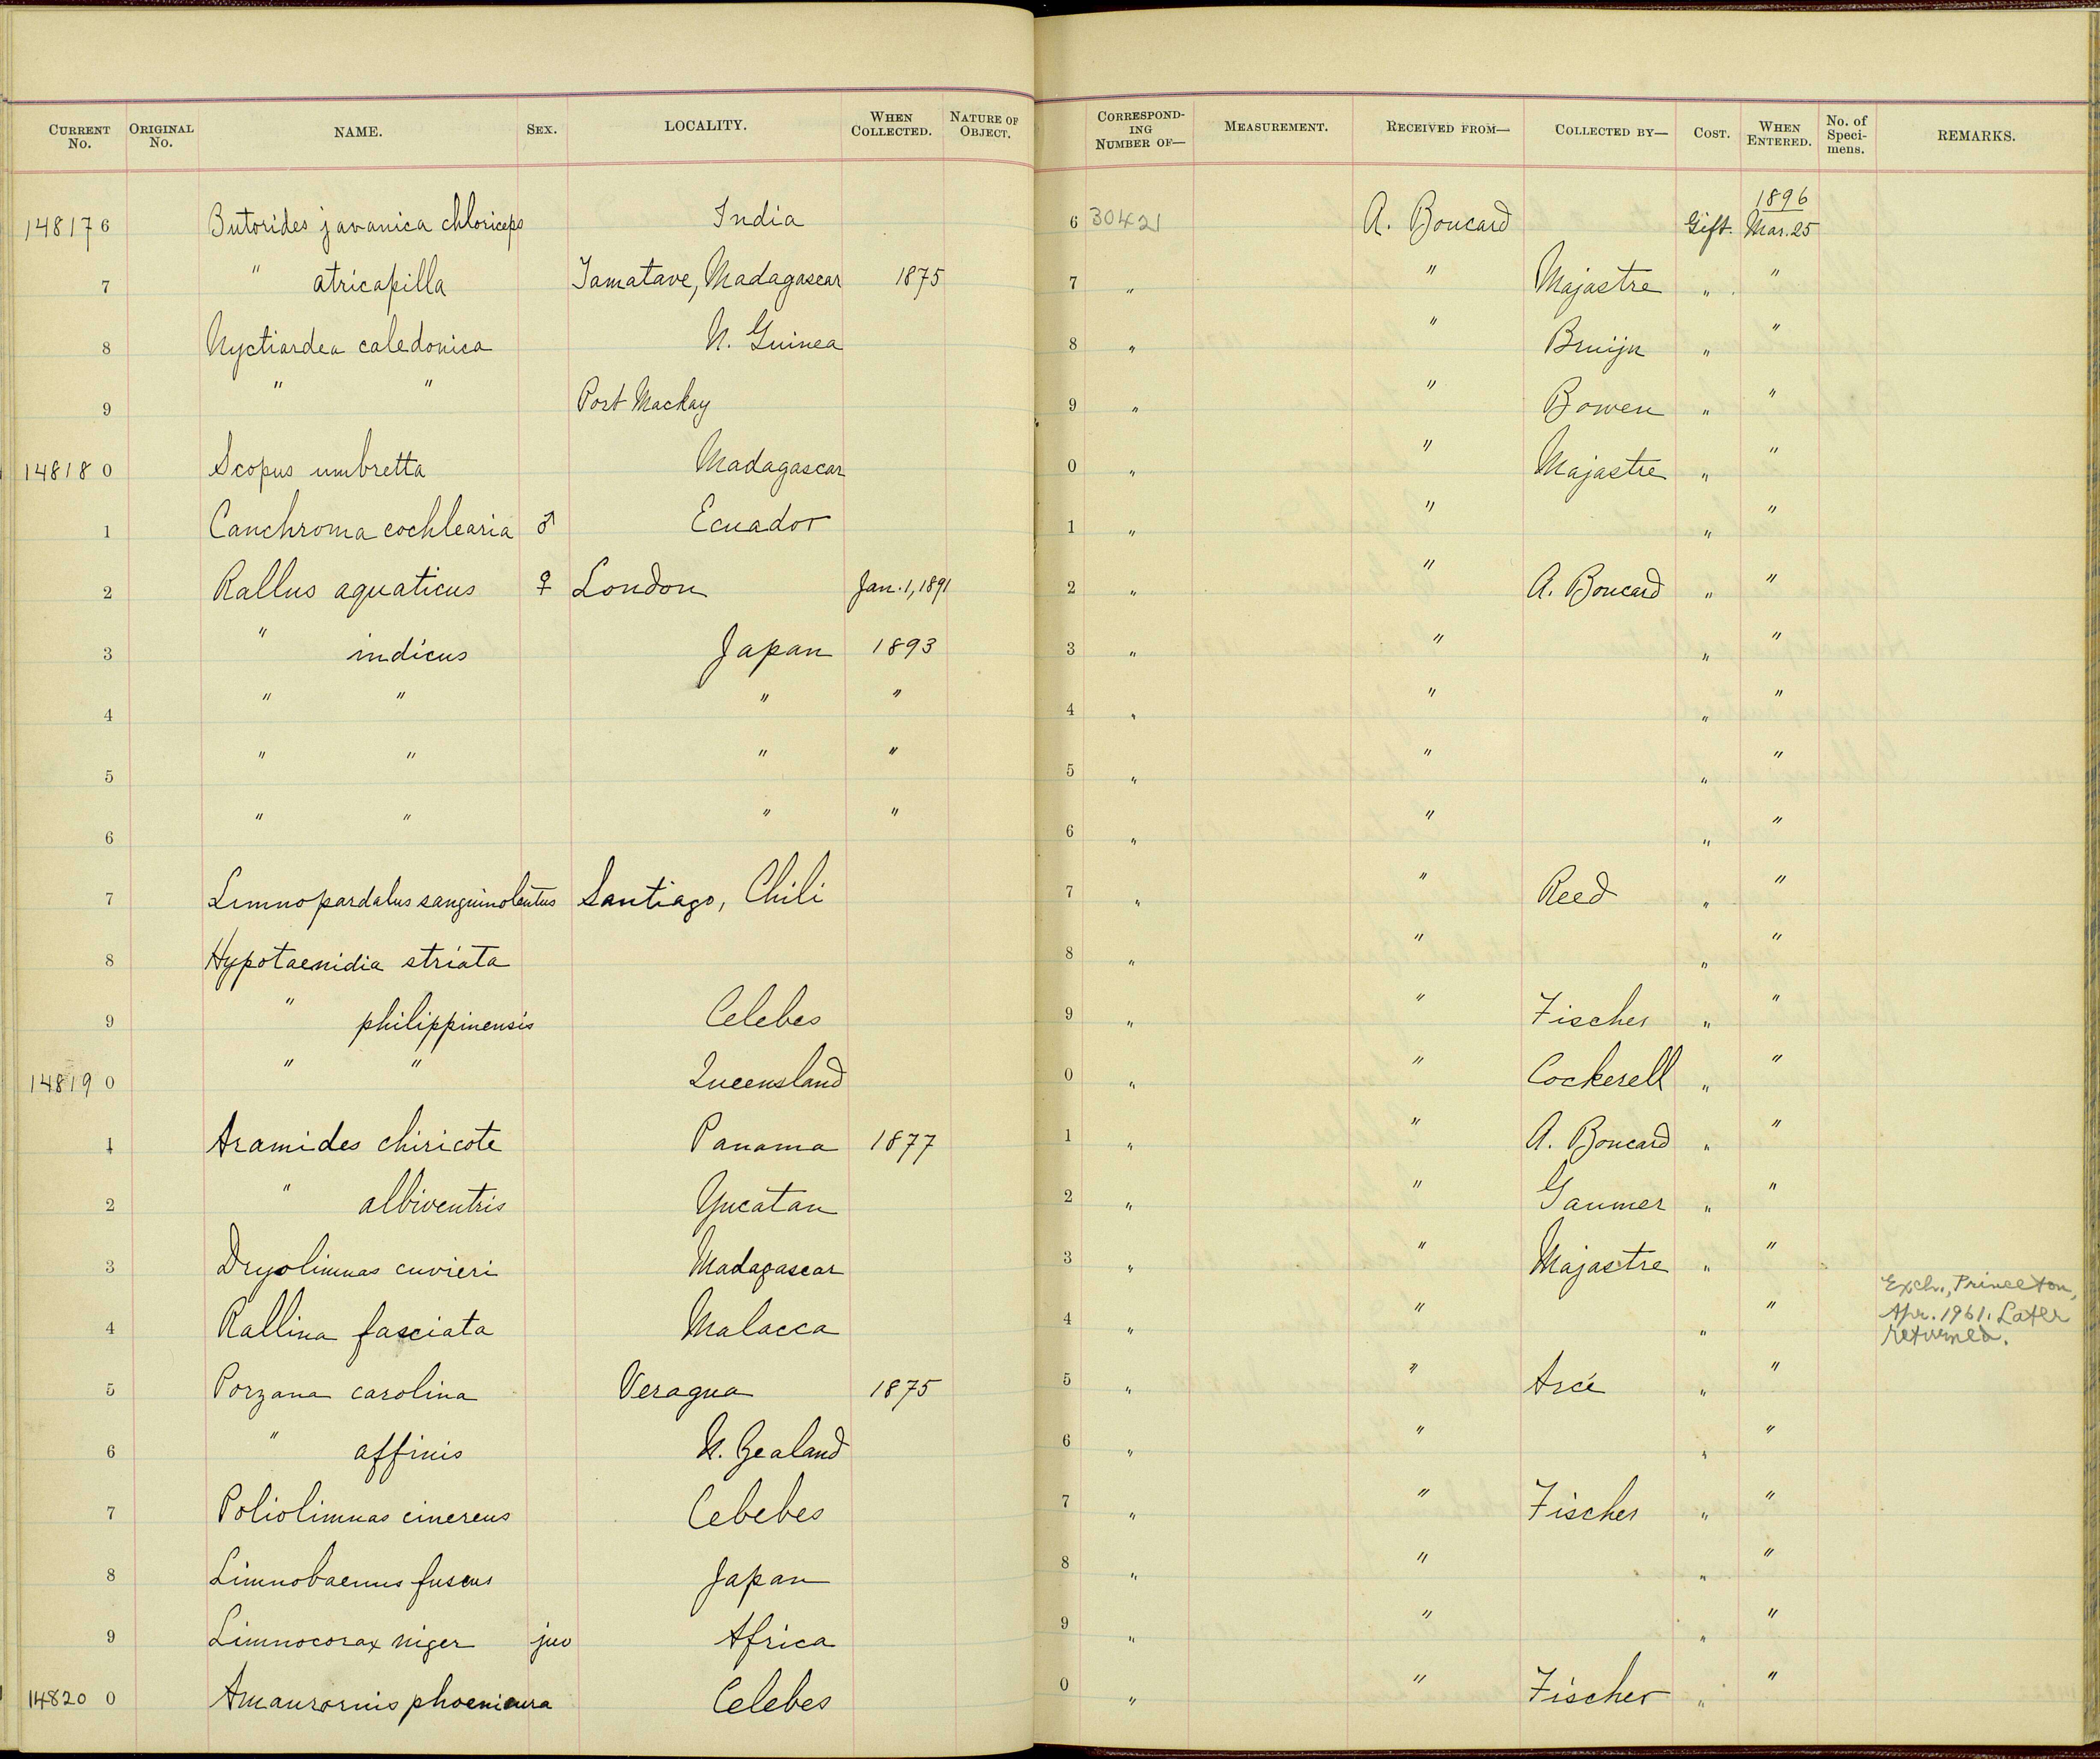 CURRENT No. ORIGINAL No. NAME. SEX. LOCALITY. WHEN COLLECTED. NATURE OF OBJECT. CORRESPONDING NUMBER OF— MEASUREMENT. RECEIVED FROM— COLLECTED BY— COST. WHEN ENTERED. No. of Specimens. REMARKS.
1896
148176 Butorides javanica chloriceps India 6 30421 A. Boucard Gift. Mar. 25
7 " atricapilla Tamatave, Madagascar 1875 7 " " Majastre " "
8 Nyctiardea caledonica N. Guinea 8 " " Bruijn " "
9 " " Port Mackay 9 " " Bowen " "
148180 Scopus umbretta Madagascar 0 " " Majastre " "
1 Canchroma cochlearia ♂ Ecuador 1 " " " "
2 Rallus aquaticus ♀ London Jan. 1, 1891 2 " " A. Boucard " "
3 " indicus Japan 1893 3 " " " "
4 " " " " 4 " " " "
5 " " " " 5 " " " "
6 " " " " 6 " " " "
7 Limnopardalus sanguinolentus Santiago, Chili 7 " " Reed " "
8 Hypotaenidia striata 8 " " " "
9 " philippinensis Celebes 9 " " Fischer " "
148190 " " Queensland 0 " " Cockerell " "
1 Aramides chiricote Panama 1877 1 " " A. Boucard " "
2 " albiventris Yucatan 2 " " Gaumer " "
3 Dryolimnas cuvieri Madagascar 3 " " Majastre " "
4 Rallina fasciata Malacca 4 " " " " Exch., Princeton,
Apr. 1961. Later
returned.
5 Porzana carolina Veragua 1875 5 " " Arcé " "
6 " affinis N. Zealand 6 " " " "
7 Poliolimnas cinereus Cebebes 7 " " Fischer " "
8 Limnobaenus fuscus Japan 8 " " " "
9 Limnocorax niger juv Africa 9 " " " "
148200 Amaurornis phoenicura Celebes 0 " " Fischer " "